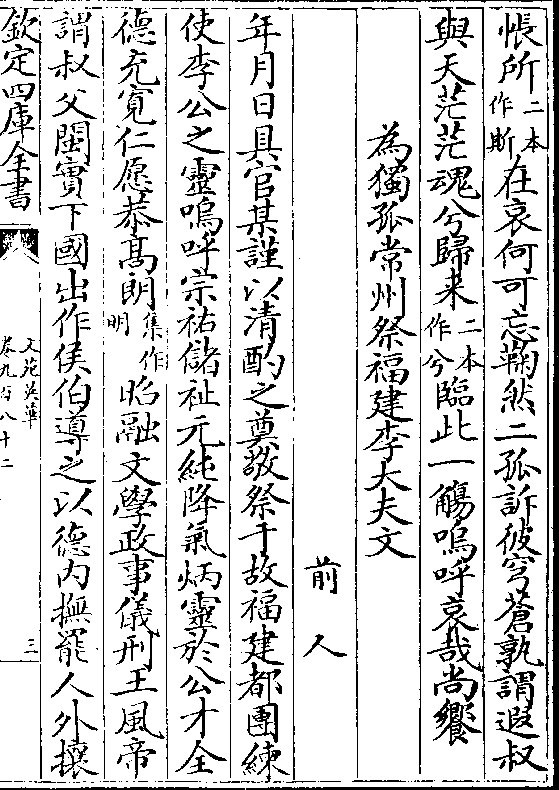 帳所二本作斯在哀何可忘鞠然二孤訴彼穹蒼孰謂遐叔
與天茫茫魂兮歸来二本作兮臨此一觴嗚呼哀哉尚饗
為獨孤常州祭福建李大夫文
前人
年月日具官某謹以清酌之奠敬祭于故福建都團練
使李公之靈嗚呼宗祐儲祉元純降氣炳靈於公才全
德充寛仁愿恭髙朗集作明昭融文學政事儀刑王風帝
謂叔父閩實下國出作侯伯導之以德内撫罷人外攘
欽定四庫全書
文苑英華
卷九百八十二
三